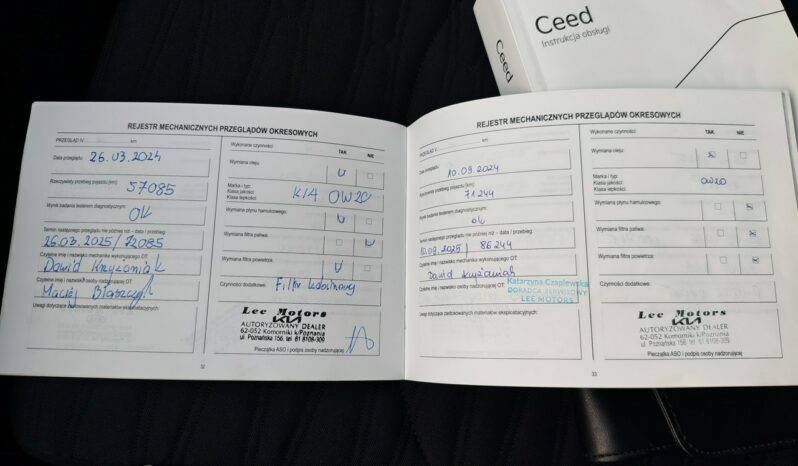 Ceed
Instrukcja obsługi
Ceed
REJESTR MECHANICZNYCH PRZEGLĄDÓW OKRESOWYCH
PRZEGLĄD IV km
Data przeglądu: 26.03.2024
Rzeczywisty przebieg pojazdu [km]: 57085
Wynik badania testerem diagnostycznym: OK
Termin następnego przeglądu nie później niż - data / przebieg:
26.03.2025/72085
Czytelne imię i nazwisko mechanika wykonującego OT:
Dawid Krzyżaniak
Czytelne imię i nazwisko osoby nadzorującej OT:
Maciej Błaszczyk
Uwagi dotyczące zastosowanych materiałów eksploatacyjnych:
Wykonane czynności: TAK NIE
Wymiana oleju:
Marka i typ:
Klasa jakości:
Klasa lepkości:
KIA 0W20
Wymiana płynu hamulcowego:
Wymiana filtra paliwa:
Wymiana filtra powietrza:
Czynności dodatkowe: Filtr kabinowy
Lee Motors
KIA
AUTORYZOWANY DEALER
62-052 Komorniki k/Poznania
ul. Poznańska 156, tel. 61 8108-309
Pieczątka ASO i podpis osoby nadzorującej
32
REJESTR MECHANICZNYCH PRZEGLĄDÓW OKRESOWYCH
PRZEGLĄD V km
Data przeglądu: 10.09.2024
Rzeczywisty przebieg pojazdu [km]: 71244
Wynik badania testerem diagnostycznym: OK
Termin następnego przeglądu nie później niż - data / przebieg:
10.09.2025 / 86244
Czytelne imię i nazwisko mechanika wykonującego OT:
Dawid Krzyżaniak
Czytelne imię i nazwisko osoby nadzorującej OT:
Katarzyna Czaplewska
DORADCA SERWISOWY
LEE MOTORS
Uwagi dotyczące zastosowanych materiałów eksploatacyjnych:
Wykonane czynności: TAK NIE
Wymiana oleju:
Marka i typ:
Klasa jakości:
Klasa lepkości:
0W20
Wymiana płynu hamulcowego:
Wymiana filtra paliwa:
Wymiana filtra powietrza:
Czynności dodatkowe:
Lee Motors
KIA
AUTORYZOWANY DEALER
62-052 Komorniki k/Poznania
ul. Poznańska 156, tel. 61 8108-309
Pieczątka ASO i podpis osoby nadzorującej
33